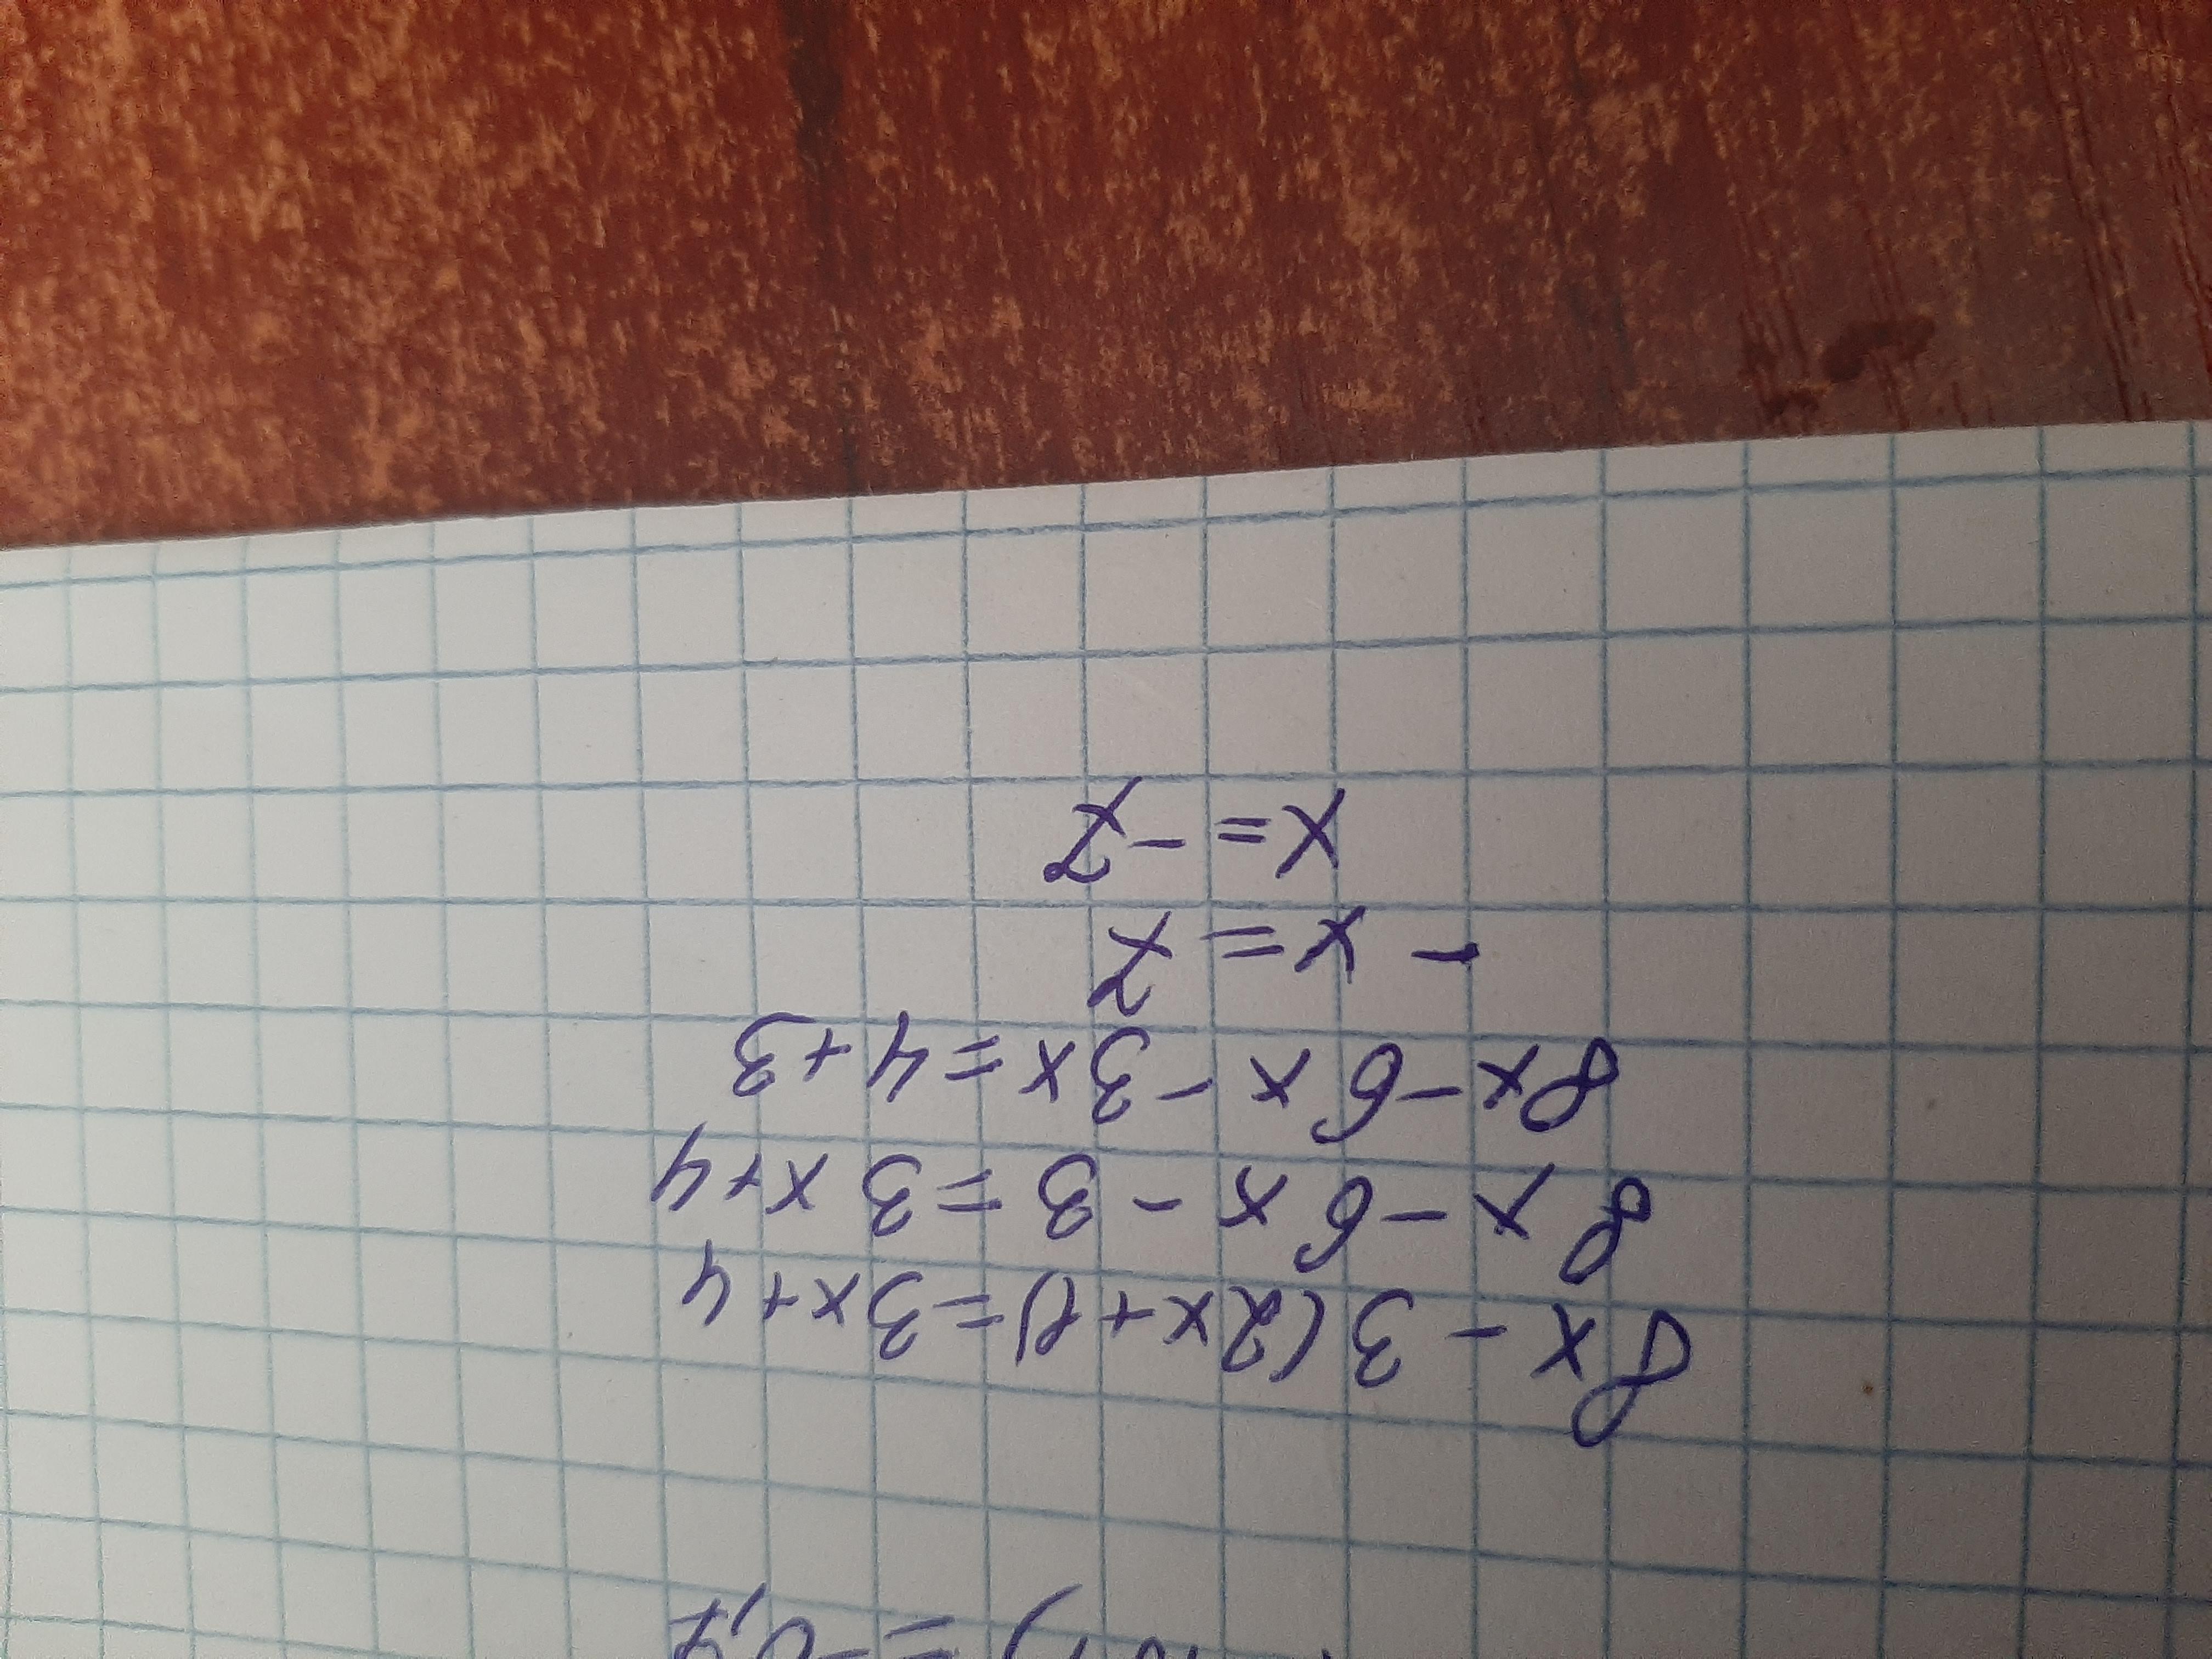 = -0,7
8x - 3(2x+1)=3x+4
8x - 6x - 3 = 3x+4
8x - 6x - 3x = 4+3
- x = 7
x = -7